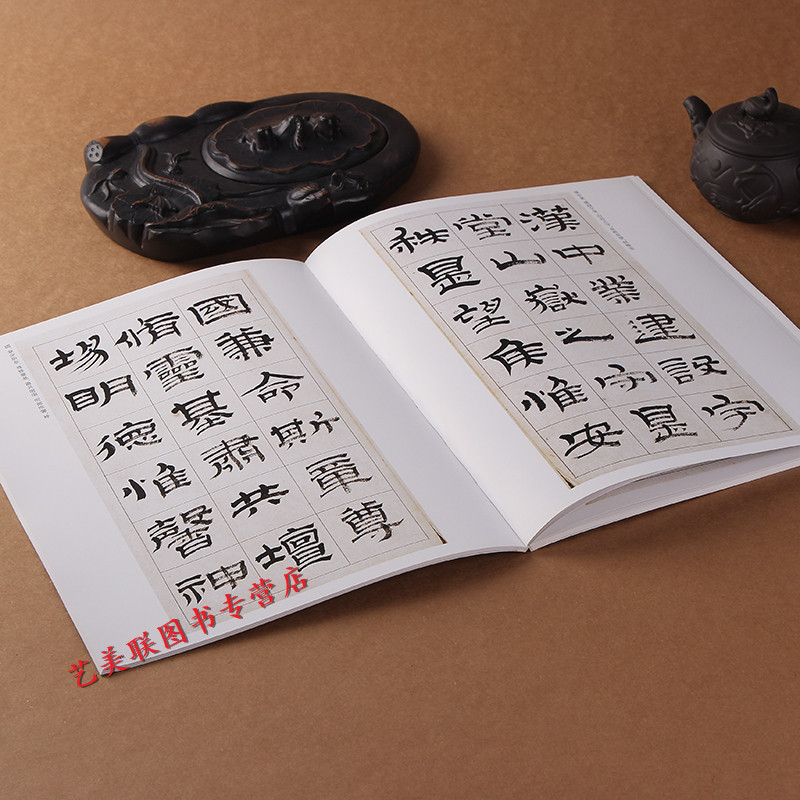 漢中葉建設宇
堂山嶽之守是
秩是望侯惟安
國兼命斯章尊
脩靈基肅共壇
場明德惟馨神
艺美联图书专营店